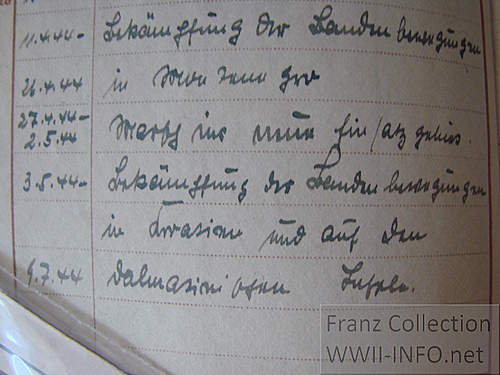 11.4.44- Bekämpfung der Banden bewegungen
26.4.44 in Mon tene gro
27.4.44- Marsch ins neue Einsatz gebiet.
2.5.44
3.5.44- Bekämpfung der Banden bewegungen
in Kroatien und auf den
9.7.44 Dalmatini schen Inseln.
Franz Collection
WWII-INFO.net